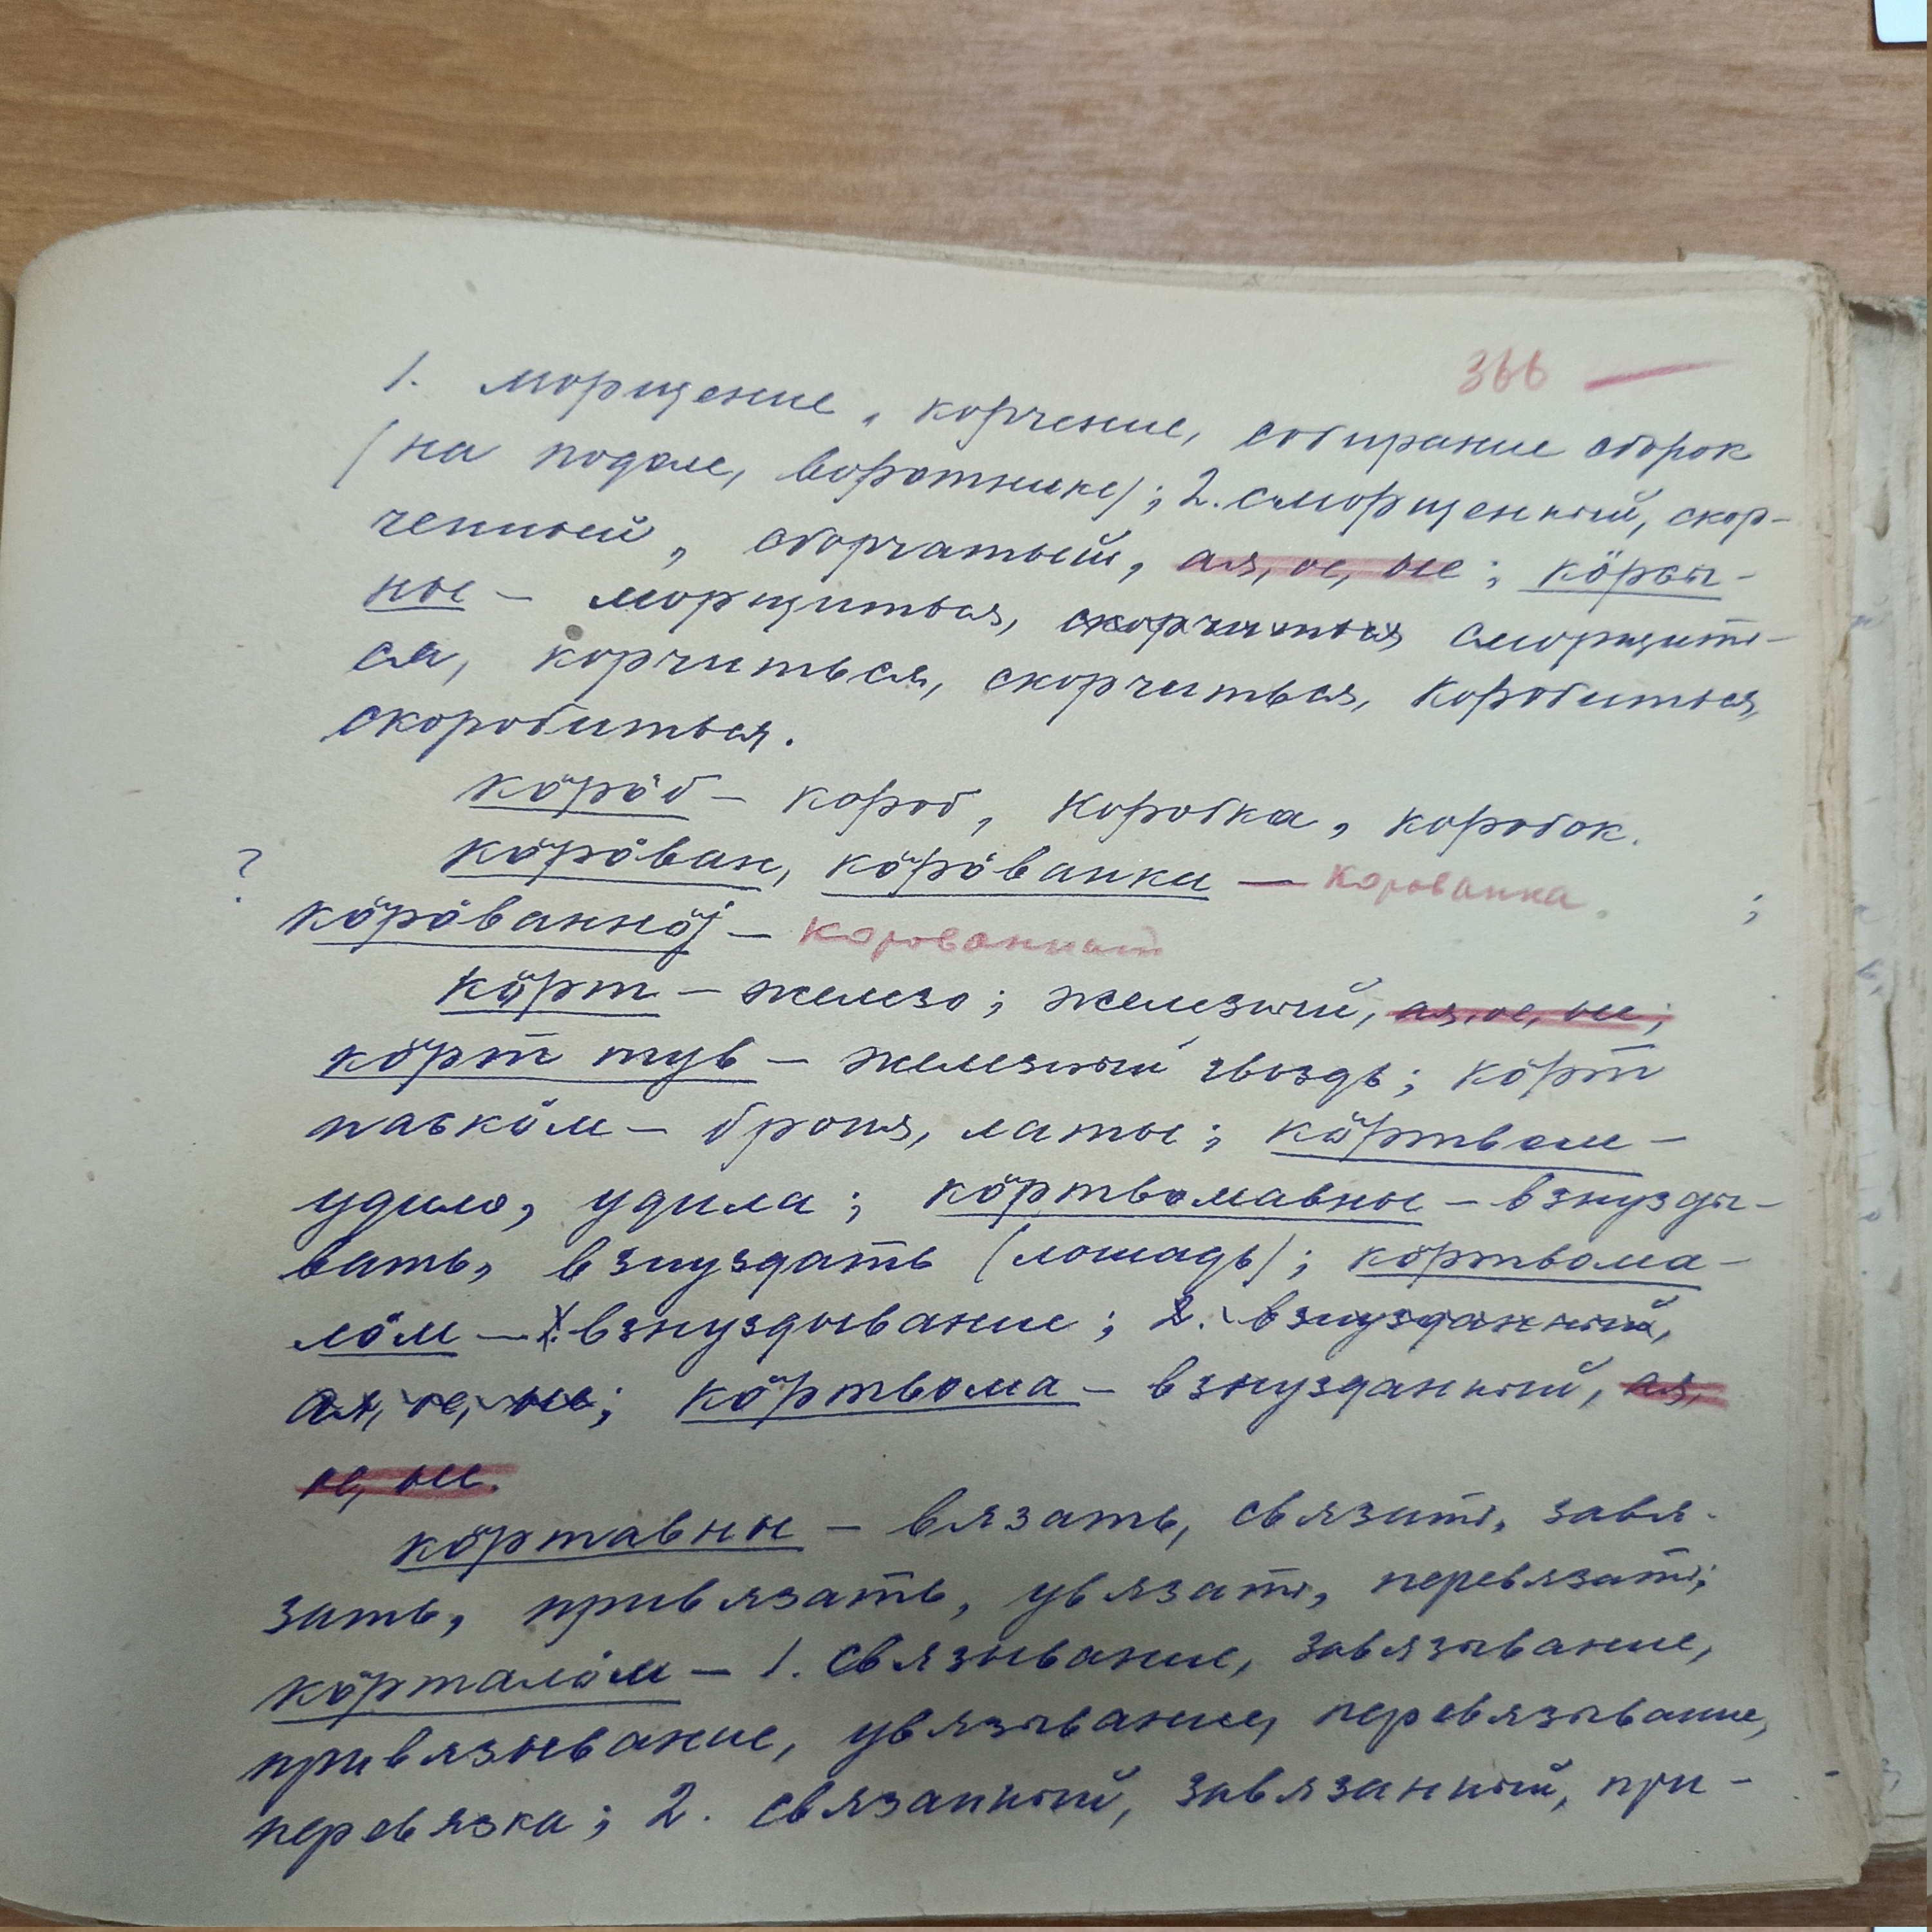 366 —
1. морщение, корчение, собирание сборок
(на подоле, воротнике); 2. сморщенный, скор-
ченный, сборчатый, ая, ое, ые; кӧрсы-
ны – морщиться, скорчиться сморщить-
ся, корчиться, скорчиться, коробиться,
скоробиться.
кӧрӧб – короб, коробка, коробок.
? кӧрӧван, кӧрӧванки — корованка. ;
кӧрӧваннӧј –
кӧрт – железо; железный, ая, ое, ые;
кӧрт тув – железный гвоздь; кӧрт
паськӧм – броня, латы; кӧртвом –
удило, удила; кӧртвомавны – взнузды-
вать, взнуздать (лошадь); кӧртвома-
лӧм – 1. взнуздывание; 2. взнузданный,
ая, ое, ые; кӧртвома – взнузданный, ая,
ое, ые.
кӧртавны – вязать, связать, завя-
зать, привязать, увязать, перевязать;
кӧрталӧм – 1. связывание, завязывание,
привязывание, увязывание, перевязывание,
перевязка; 2. связанный, завязанный, при-